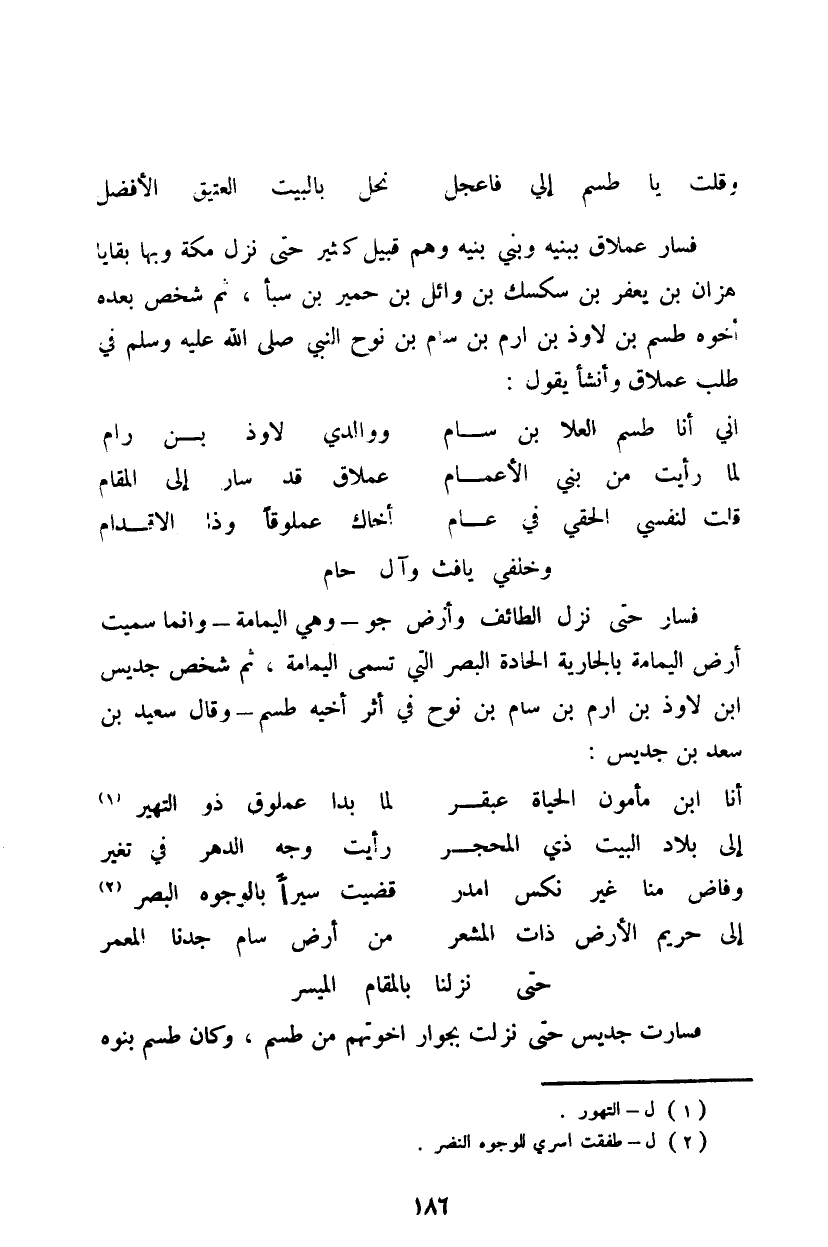 وقلت يا طسم إلي فاعجل نحل بالبيت العتيق الأفضل
فسار عملاق ببنيه وبني بنيه وهم قبيل كثير حتى نزل مكة وبها بقايا
هزان بن يعفر بن سكسك بن وائل بن حمير بن سبأ ، ثم شخص بعده
أخوه طسم بن لاوذ بن ارم بن سام بن نوح النبي صلى الله عليه وسلم في
طلب عملاق وأنشأ يقول :
اني أنا طسم العلا بن ســام ووالدي لاوذ بــن رام
لما رأيت من بني الأعمــام عملاق قد سار إلى المقام
قلت لنفسي الحقي في عــام أخاك عملوقاً وذا الاقــدام
وخلفي يافث وآل حام
فسار حتى نزل الطائف وأرض جو – وهي اليمامة – وانما سميت
أرض اليمامة بالجارية الحادة البصر التي تسمى اليمامة ، ثم شخص جديس
ابن لاوذ بن ارم بن سام بن نوح في أثر أخيه طسم – وقال سعيد بن
سعد بن جديس :
أنا ابن مأمون الحياة عبقــر لما بدا عملوق ذو التهير (١)
إلى بلاد البيت ذي المحجــر رأيت وجه الدهر في تغير
وفاض منا غير نكس امدر قضيت سيراً بالوجوه البصر (٢)
إلى حريم الأرض ذات المشعر من أرض سام جدنا المعمر
حتى نزلنا بالمقام الميسر
فسارت جديس حتى نزلت بجوار اخوتهم من طسم ، وكان طسم بنوه
( ١ ) ل – التهور .
( ٢ ) ل – طفقت اسري للوجوه النضر .
١٨٦